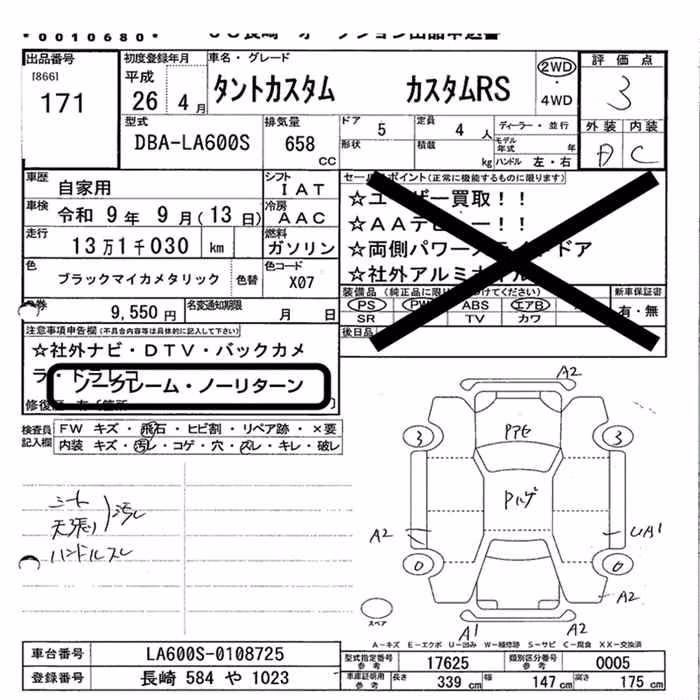 *0010680*
出品番号
[866]
171
初度登録年月
平成
26年 4月
車名・グレード
タントカスタム カスタムRS
2WD
・
4WD
評価点
3
外装 内装
A C
型式
DBA-LA600S
排気量
658
CC
ドア
5
定員
4 人
形状
積載
kg
ディーラー・並行
モデル年式 年
ハンドル 左・右
車歴
自家用
シフト
IAT
車検
令和 9年 9月(13日)
冷房
AAC
走行
13万1千030 km
燃料
ガソリン
色
ブラックマイカメタリック
色替
色コード
X07
券
9,550円
名変通知期限
月 日
セールスポイント(正常に機能するものに限ります)
☆ユーザー買取!!
☆AAデビュー!!
☆両側パワースライドドア
☆社外アルミホイール
装備品
PS PW ABS エアB
SR TV カワ
新車保証書
有・無
後日品
注意事項申告欄(不具合内容等は具体的に記入して下さい)
☆社外ナビ・DTV・バックカメ
ラ・ドラレコ
ノークレーム・ノーリターン
検査員記入欄
FW キズ・飛石・ヒビ割・リペア跡・×要
内装 キズ・汚レ・コゲ・穴・スレ・キレ・破レ
シート
天張り 汚レ
ハンドルスレ
A2
3 3
A2 UA1
0 0
A2
A1 A2
スペア
A-キズ E-エクボ U-凹み W-補修跡 S-サビ C-腐食 XX-交換済
車台番号
LA600S-0108725
登録番号
長崎 584 や 1023
型式指定番号
参考
17625
類別区分番号
参考
0005
車庫証明用
参考
長さ
339 cm
幅
147 cm
高さ
175 cm